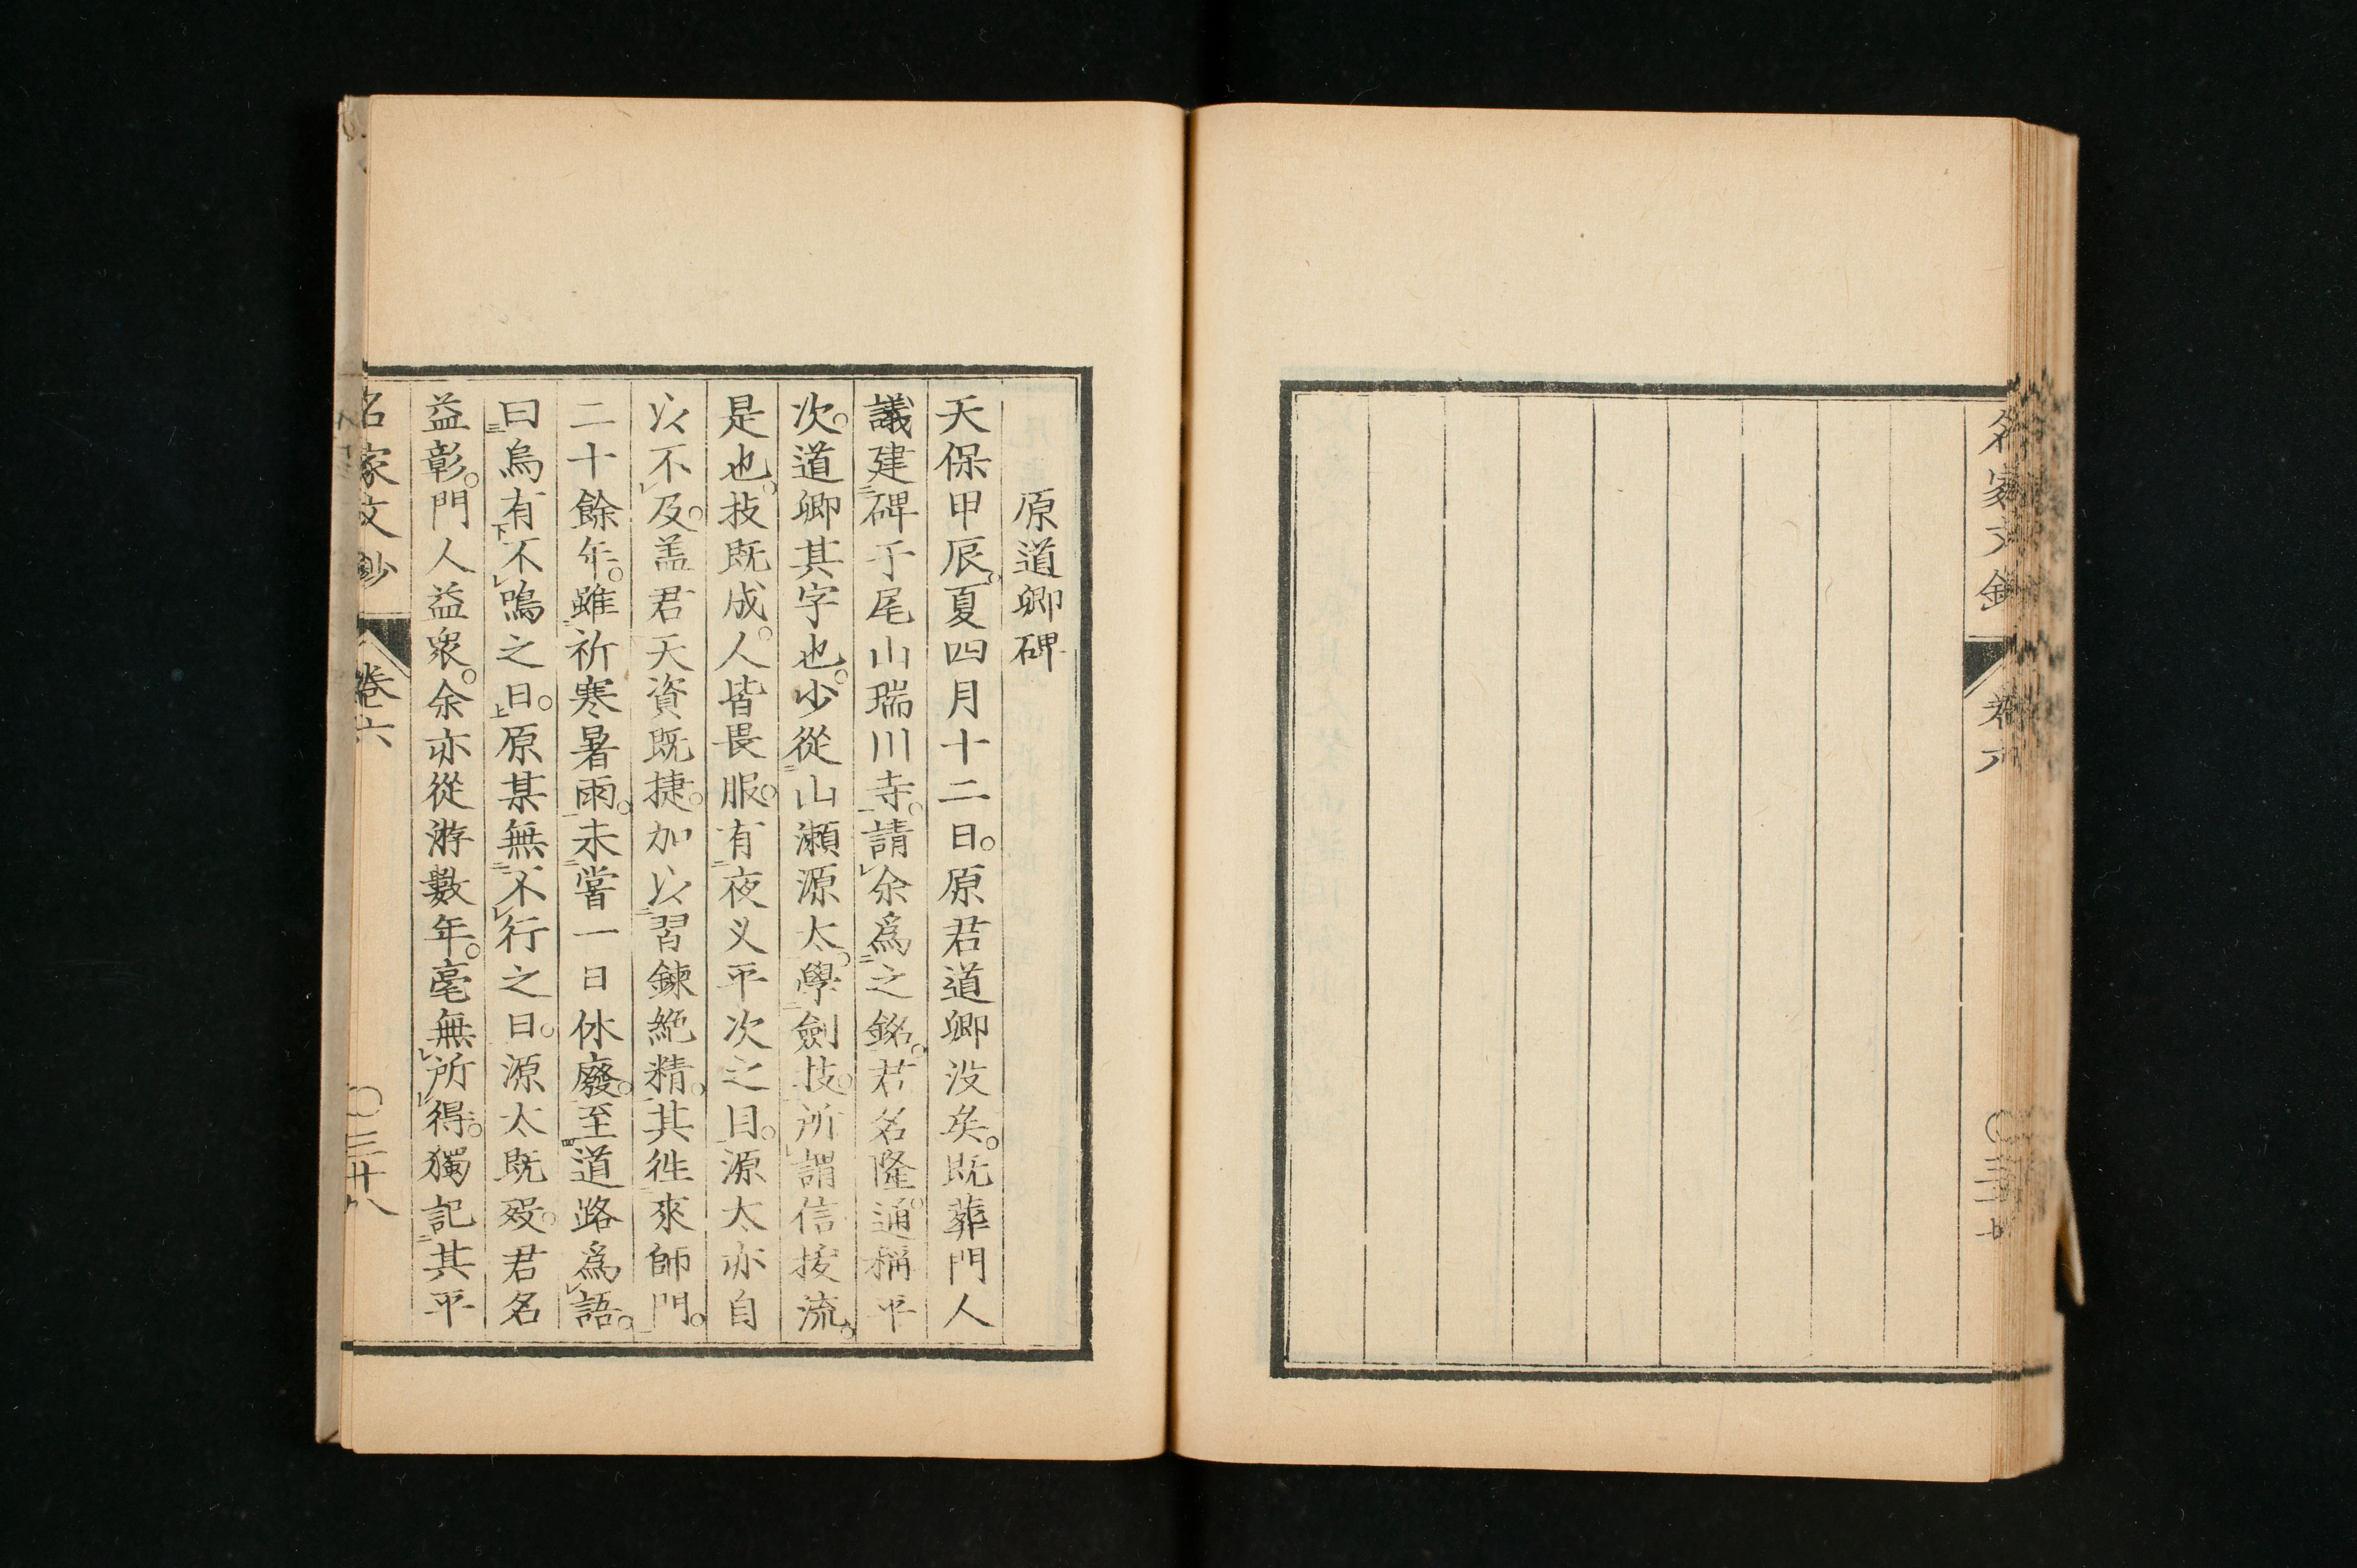 名家文鈔 卷六 〇三十
原道卿碑
天保甲辰。夏四月十二日。原君道卿没矣。既葬門人
議建二碑于尾山瑞川寺一。請レ余爲二之銘一。君名隆。通稱平
次。道卿其字也。少從二山瀬源太一。學二劍技一。所レ謂信抜流。
是也。技既成。人皆畏服。有二夜叉平次之目一。源太亦自
以不レ及。盖君天資既捷。加以二習鍊絶精一。其徃二來師門一。
二十餘年。雖二祈寒暑雨一。未三嘗一日休廢一。至四道路爲レ語。
曰三烏有下不レ鳴之日上。原某無二不レ行之日一。源太既歿。君名
益彰。門人益衆。余亦從游數年。毫無レ所レ得。獨記二其平
名家文鈔 卷六 〇三十八